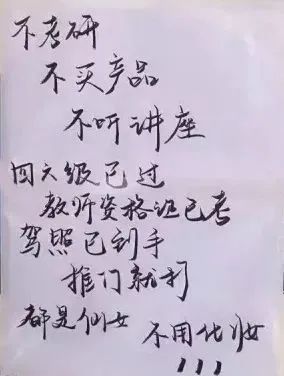 不考研
不买产品
不听讲座
四六级已过
教师资格证已考
驾照已到手
推门就打
都是仙女
不用化妆
!!!